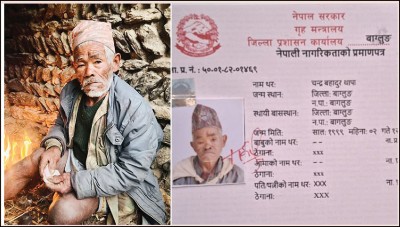 नेपाल सरकार
गृह मन्त्रालय
जिल्ला प्रशासन कार्यालय बाग्लुङ
नेपाली नागरिकताको प्रमाणपत्र
प्रा. प्र. नं. : ५०-०१-८२-०१४६९
नाम थर: चन्द्र बहादुर थापा
जन्म स्थान: जिल्ला: बाग्लुङ
न.पा.: बाग्लुङ
स्थायी बासस्थान: जिल्ला: बाग्लुङ
न.पा.: बाग्लुङ
जन्म मिति: साल: १९९९ महिना: ०२ गते
बाबुको नाम थर: --
ठेगाना: xxx
आमाको नाम थर: --
ठेगाना: xxx
पति/पत्नीको नाम थर: XXX
ठेगाना: XXX